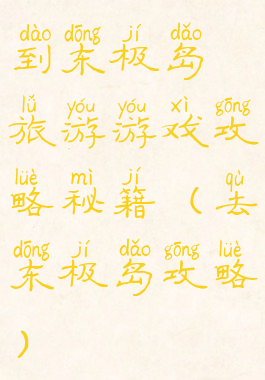 dào dōng jí dǎo
到东极岛
lǚ yóu yóu xì gōng
旅游游戏攻
lüè mì jí qù
略秘籍（去
dōng jí dǎo gōng lüè
东极岛攻略
）